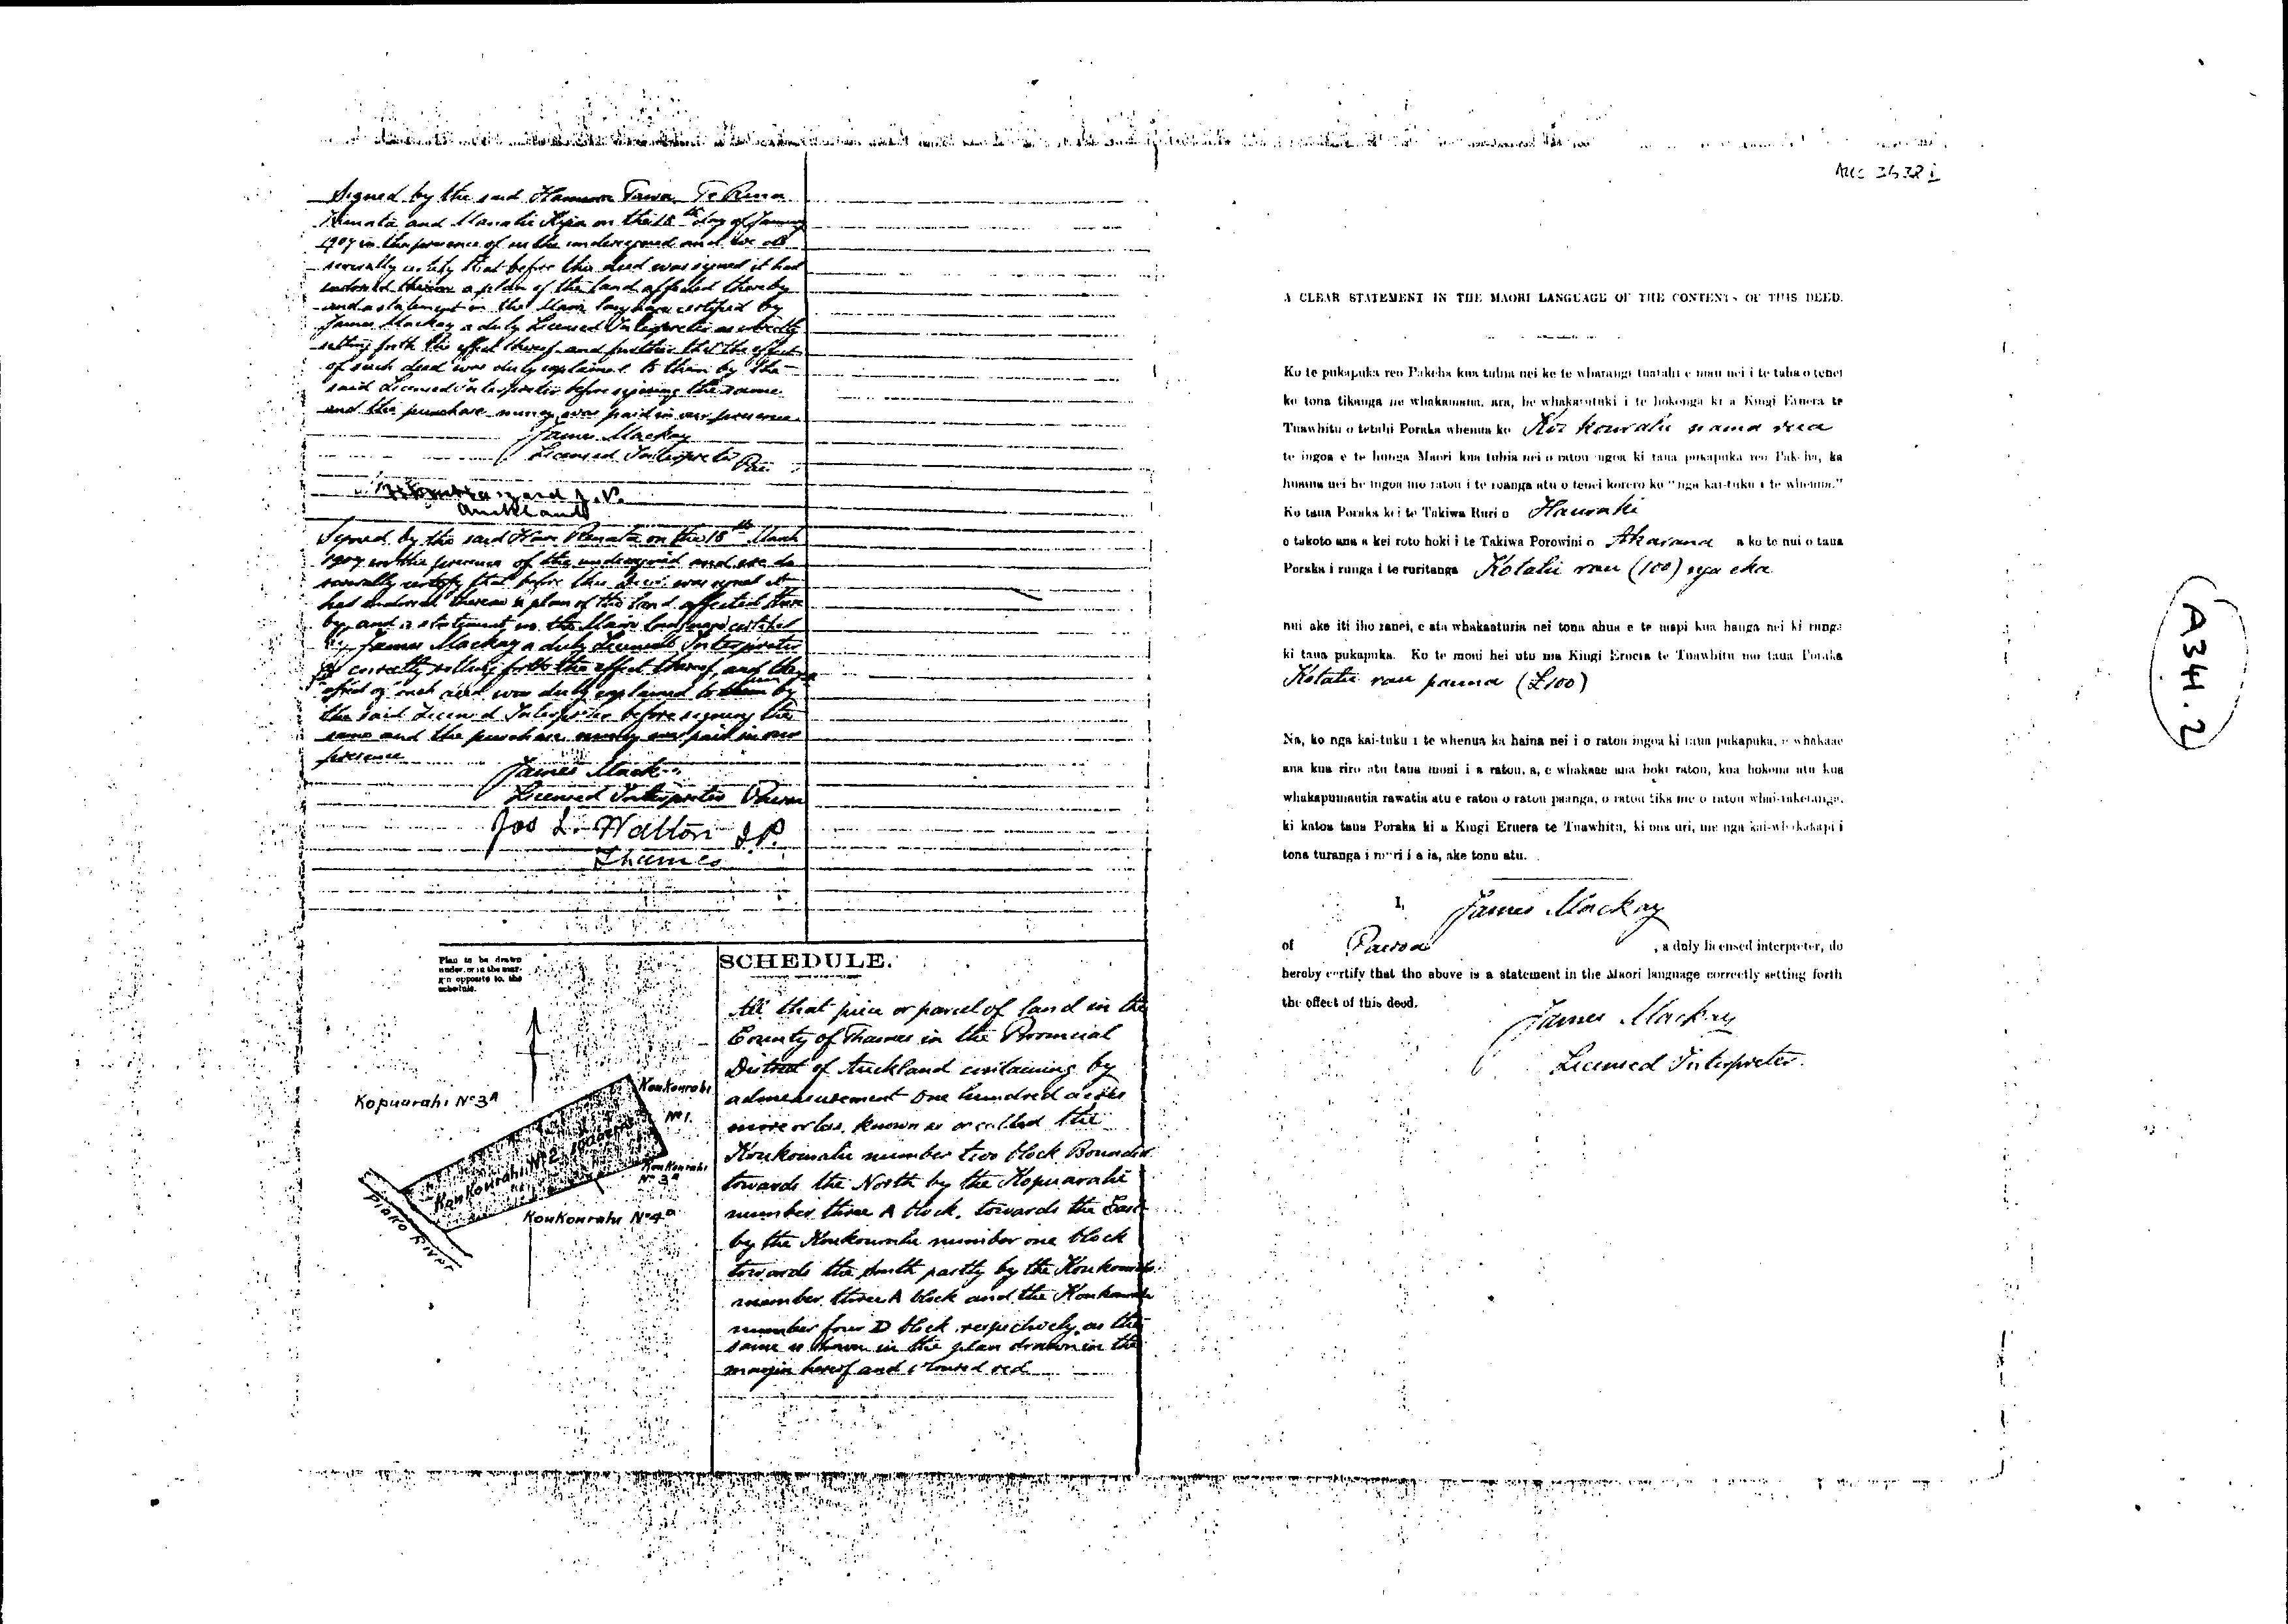 Signed by the said Tawa Te
Renata and Kipa on the 18th day of January
1907 in the presence of us the undersigned and we do
severally certify that before this deed was signed it had
endorsed thereon a plan of the land affected thereby
and a statement in the Maori language certified by
James Mackay a duly Licensed Interpreter as correctly
setting forth the effect thereof and further that the effect
of such deed was duly explained to them by the
said Licensed Interpreter before signing the same
and the purchase money was paid in our presence
James Mackay
Licensed Interpreter
J.P.
Auckland
Signed by the said Renata on the 18th March
1907 in the presence of the undersigned and we do
severally certify that before this Deed was signed it
had endorsed thereon a plan of the land affected there
by and a statement in the Maori language certified
by James Mackay a duly Licensed Interpreter
as correctly setting forth the effect thereof, and the
effect of such deed was duly explained to them by
the said Licensed Interpreter before signing the
same and the purchase money was paid in our
presence
James Mackay
Licensed Interpreter Paeroa
Jos L. Walton J.P.
Thames
Plan to be drawn
under, or in the mar-
gin opposite to, the
schedule.
Kopuarahi No 3A
Koukourahi
No 1.
Koukourahi No 2 100 acres
Koukourahi
No 3A
Koukourahi No 4D
Piako River
SCHEDULE.
All that piece or parcel of land in the
County of Thames in the Provincial
District of Auckland containing by
admeasurement One hundred acres
more or less, known as or called the
Koukourahi number two block Bounded
towards the North by the Kopuarahi
number three A block, towards the East
by the Koukourahi number one block
towards the South partly by the Koukourahi
number three A block and the Koukourahi
number four D block respectively as the
same is shown in the plan drawn in the
margin hereof and coloured red
A CLEAR STATEMENT IN THE MAORI LANGUAGE OF THE CONTENTS OF THIS DEED.
Ko te pukapuka reo Pakeha kua tuhia nei ke te wharangi tuatahi e mau nei i te taha o tenei
ko tona tikanga he whakamana, ara, he whakatutuki i te hokonga ki a Kingi Eruera te
Tuawhitu o tetahi Poraka whenua ko Koukourahi nama rua
te ingoa e te hunga Maori kua tuhia nei o ratou ingoa ki taua pukapuka reo Pakeha, ka
huaina nei he ingoa mo ratou i te roanga atu o tenei korero ko "nga kai-tuku i te whenua."
Ko taua Poraka kei te Takiwa Ruri o Hauraki
o takoto ana a kei roto hoki i te Takiwa Porowini o Akarana a ko te nui o taua
Poraka i runga i te ruritanga Kotahi rau (100) nga eka
nui ake iti iho ranei, e ata whakaaturia nei tona ahua e te mapi kua hanga nei ki runga
ki taua pukapuka. Ko te moni hei utu ma Kingi Eruera te Tuawhitu mo taua Poraka
Kotahi rau pauna (£100)
Na, ko nga kai-tuku i te whenua ka haina nei i o ratou ingoa ki taua pukapuka, e whakaae
ana kua riro atu taua moni i a ratou, a, e whakaae ana hoki ratou, kua hokona atu kua
whakapumautia rawatia atu e ratou o ratou paanga, o ratou tika me o ratou whai-taketanga,
ki katoa taua Poraka ki a Kingi Eruera te Tuawhitu, ki ona uri, me nga kai-whakakapi i
tona turanga i muri i a ia, ake tonu atu.
I, James Mackay
of Paeroa , a duly licensed interpreter, do
hereby certify that the above is a statement in the Maori language correctly setting forth
the effect of this deed.
James Mackay
Licensed Interpreter.
A34.2